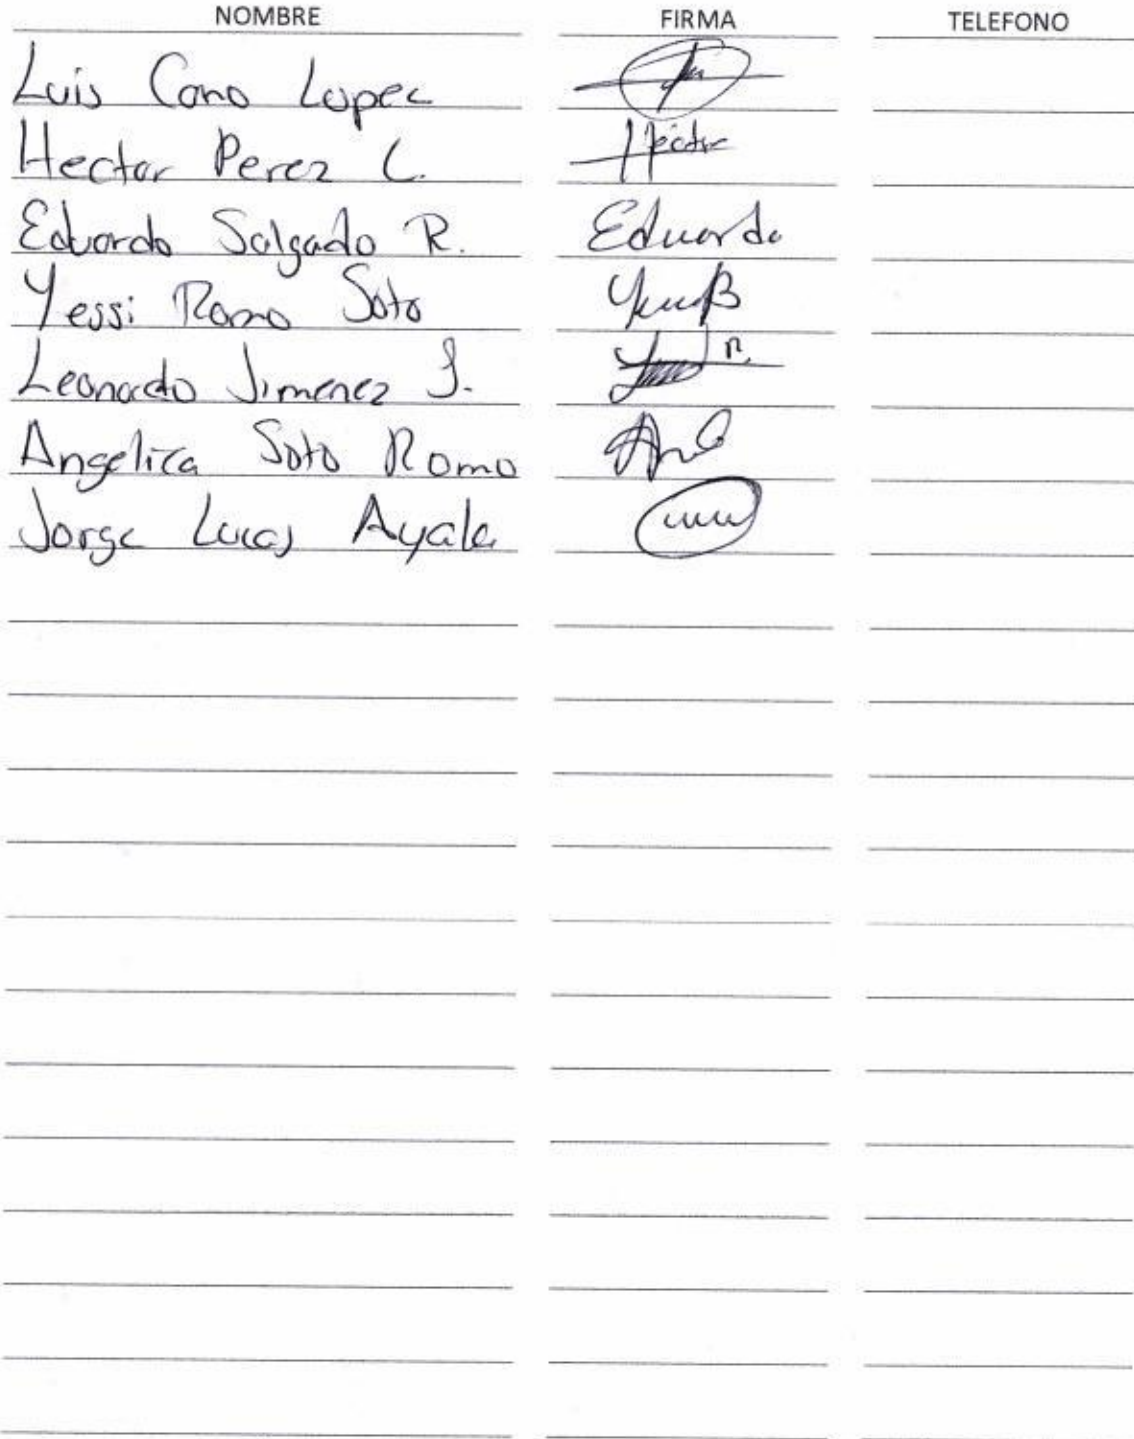 NOMBRE FIRMA TELEFONO
Luis Cano Lopez
Hector Perez C. Hector
Eduardo Salgado R. Eduardo
Yessi Romo Soto
Leonardo Jimenez J.
Angelica Soto Romo
Jorge Lucas Ayala